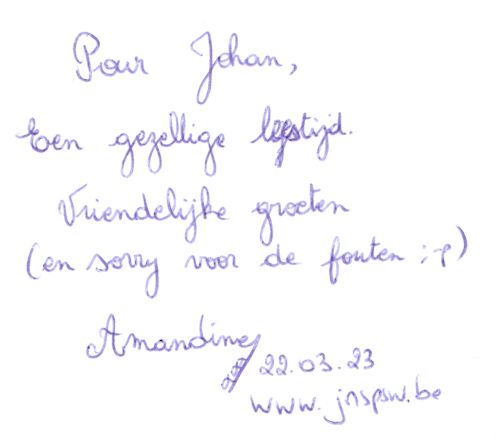 Pour Johan,
Een gezellige leestijd.
Vriendelijke groeten
(en sorry voor de fouten ;-p)
Amandine
22.03.23
www.jnspsw.be